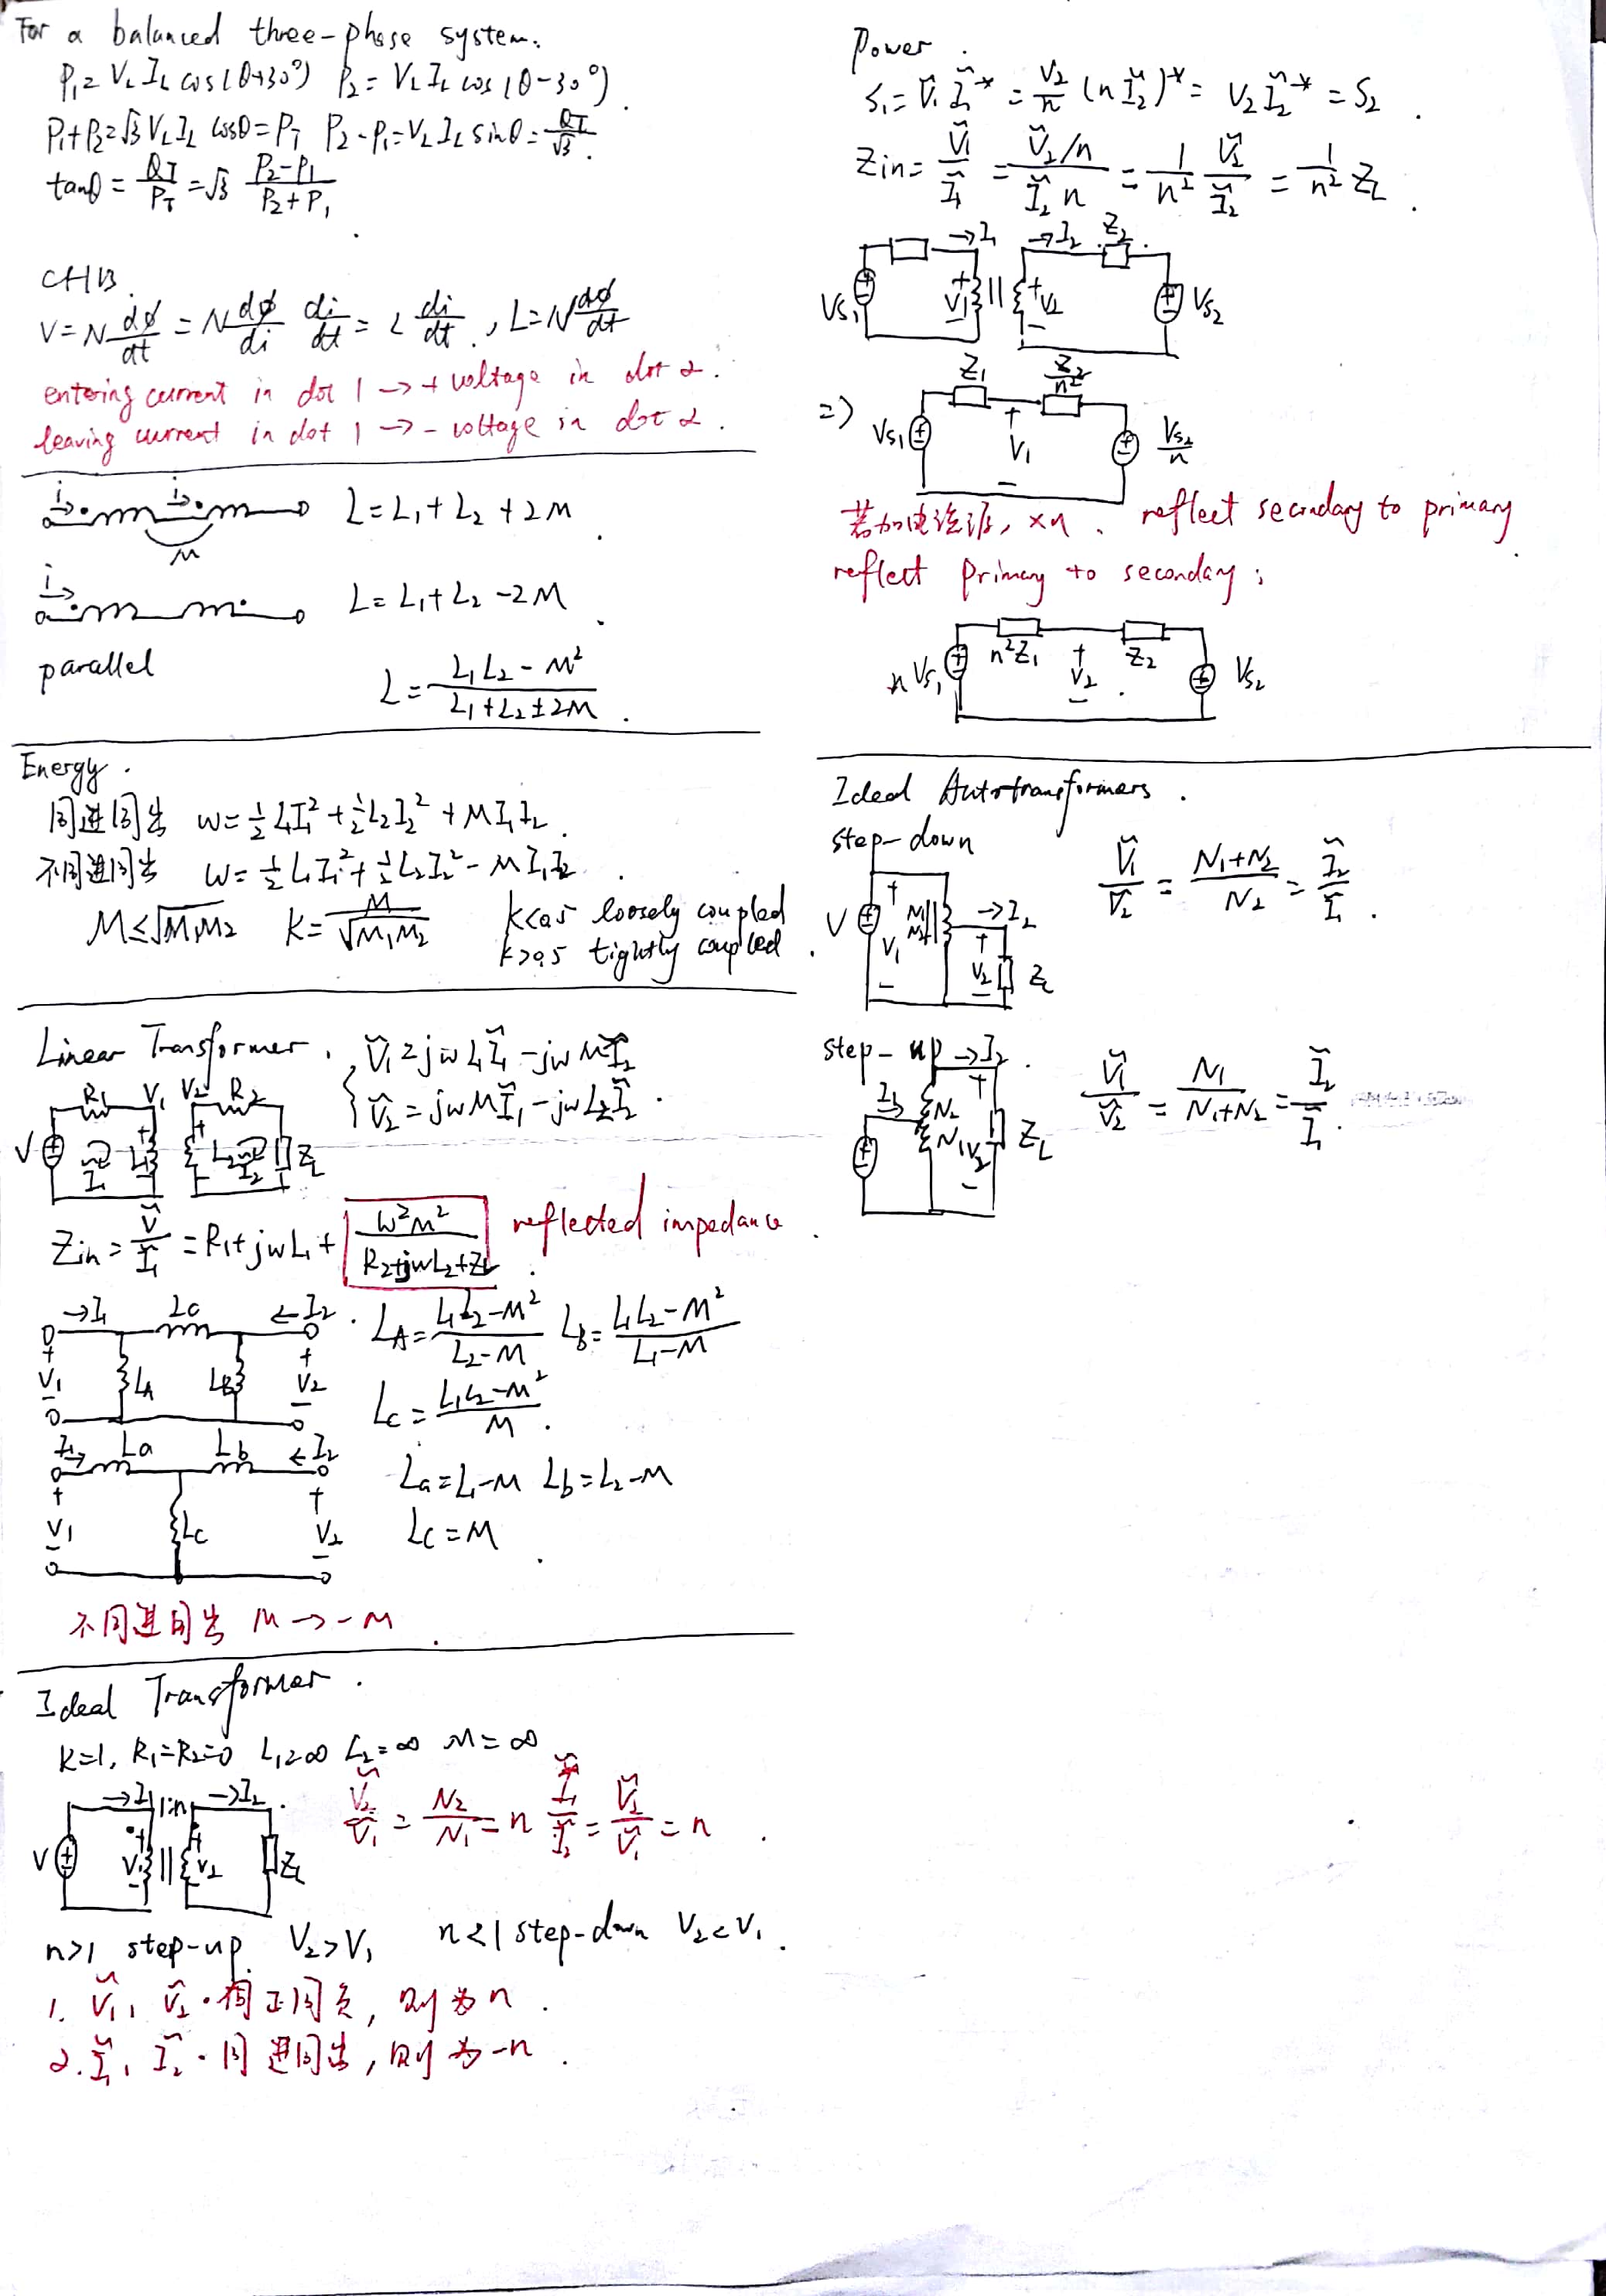 For a balanced three-phase system.
P₁ = V_L I_L cos(θ+30°) P₂ = V_L I_L cos(θ-30°)
P₁+P₂ = √3 V_L I_L cosθ = P_T P₂-P₁ = V_L I_L sinθ = Q_T/√3
tanθ = Q_T/P_T = √3 (P₂-P₁)/(P₂+P₁)
CH13.
V = N dφ/dt = N dφ/di di/dt = L di/dt, L = N dφ/dt
entering current in dot 1 → + voltage in dot 2.
leaving current in dot 1 → - voltage in dot 2.
i i L = L₁ + L₂ + 2M
M
i L = L₁ + L₂ - 2M
parallel L = (L₁L₂ - M²)/(L₁+L₂±2M)
Energy.
同进同出 w = ½L₁I₁² + ½L₂I₂² + MI₁I₂
不同进同出 w = ½L₁I₁² + ½L₂I₂² - MI₁I₂
M ≤ √M₁M₂ k = M/√M₁M₂ k<0.5 loosely coupled
k>0.5 tightly coupled.
Linear Transformer. Ṽ₁ = jwL₁Ĩ₁ - jwMĨ₂
Ṽ₂ = jwMĨ₁ - jwL₂Ĩ₂
R₁ V₁ V₂ R₂
V Ĩ₁ L₁ L₂ Ĩ₂ Z_L
Zin = Ṽ/Ĩ₁ = R₁+jwL₁+ w²M²/(R₂+jwL₂+Z_L) reflected impedance
→I₁ Lc ←I₂ L_A = (L₁L₂-M²)/(L₂-M) L_B = (L₁L₂-M²)/(L₁-M)
+ V₁ - L_A L_B + V₂ - Lc = (L₁L₂-M²)/M
I₁→ La Lb ←I₂ La = L₁-M Lb = L₂-M
+ V₁ - Lc + V₂ - Lc = M
不同进同出 M → -M
Ideal Transformer.
k=1, R₁=R₂=0 L₁=∞ L₂=∞ M=∞
→I₁ 1:n →I₂ Ṽ₂/Ṽ₁ = N₂/N₁ = n Ĩ₁/Ĩ₂ = Ṽ₂/Ṽ₁ = n
V + V₁ - + V₂ Z_L
n>1 step-up V₂>V₁ n<1 step-down V₂<V₁.
1. Ṽ₁, Ṽ₂·同正同负, 则为n.
2. Ĩ₁, Ĩ₂·同进同出, 则为-n.
Power.
S₁ = Ṽ₁Ĩ₁* = V₂/n (nĨ₂)* = V₂Ĩ₂* = S₂
Zin = Ṽ₁/Ĩ₁ = (Ṽ₂/n)/(Ĩ₂n) = 1/n² Ṽ₂/Ĩ₂ = 1/n² Z_L
→I₁ →I₂ Z₂
Vs₁ + V₁ - + V₂ - Vs₂
Z₁ Z₂/n²
⇒ Vs₁ + V₁ - Vs₂/n
若加电流源, ×n. reflect secondary to primary
reflect primary to secondary:
nVs₁ n²Z₁ + V₂ - Z₂ Vs₂
Ideal Autotransformers.
step-down
Ṽ₁/Ṽ₂ = (N₁+N₂)/N₂ = Ĩ₂/Ĩ₁
V + V₁ - N₁ N₂ →I₂ + V₂ - Z_L
step-up →I₂
I₁→ N₂ N₁ + V₂ - Z_L Ṽ₁/Ṽ₂ = N₁/(N₁+N₂) = Ĩ₂/Ĩ₁